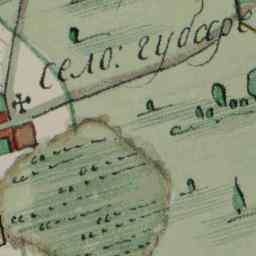 село: губаре